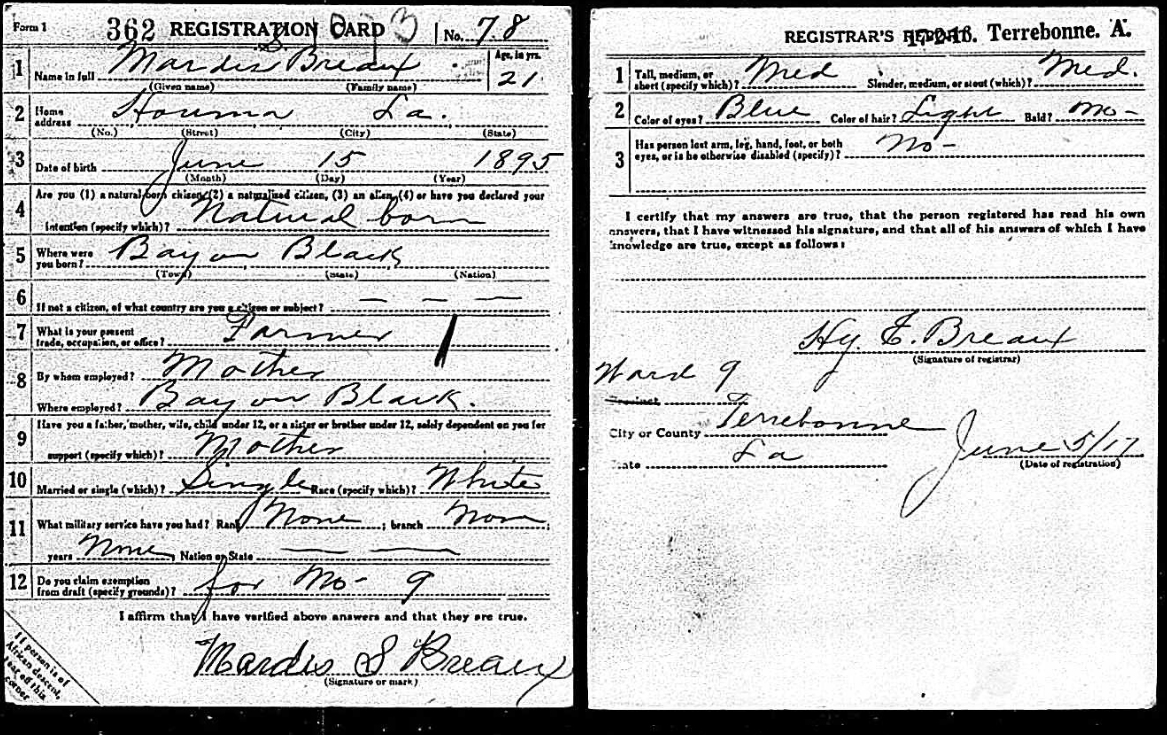 Form 1
362 REGISTRATION CARD No. 78
1 Name in full Mardis S Breaux Age, in yrs. 21
(Given name) (Family name)
2 Home address Houma La.
(No.) (Street) (City) (State)
3 Date of birth June 15 1895
(Month) (Day) (Year)
4 Are you (1) a natural born citizen, (2) a naturalized citizen, (3) an alien, (4) or have you declared your
intention (specify which)? Natural born
5 Where were you born? Bayou Black
(Town) (State) (Nation)
6 If not a citizen, of what country are you a citizen or subject? — — —
7 What is your present trade, occupation, or office? Farmer
8 By whom employed? Mother
Where employed? Bayou Black.
9 Have you a father, mother, wife, child under 12, or a sister or brother under 12, solely dependent on you for
support (specify which)? Mother
10 Married or single (which)? Single Race (specify which)? White
11 What military service have you had? Rank None ; branch None ;
years None ; Nation or State — —
12 Do you claim exemption from draft (specify grounds)? for No- 9
I affirm that I have verified above answers and that they are true.
Mardis S Breaux
(Signature or mark)
If person is of
African descent,
tear off this
corner
REGISTRAR'S REPORT 17-2-16. Terrebonne. A.
1 Tall, medium, or short (specify which)? Med Slender, medium, or stout (which)? Med.
2 Color of eyes? Blue Color of hair? Light Bald? No-
3 Has person lost arm, leg, hand, foot, or both
eyes, or is he otherwise disabled (specify)? No-
I certify that my answers are true, that the person registered has read his own
answers, that I have witnessed his signature, and that all of his answers of which I have
knowledge are true, except as follows:
Hy. E. Breaux
(Signature of registrar)
Ward 9
Precinct
City or County Terrebonne
State La
June 5/17
(Date of registration)